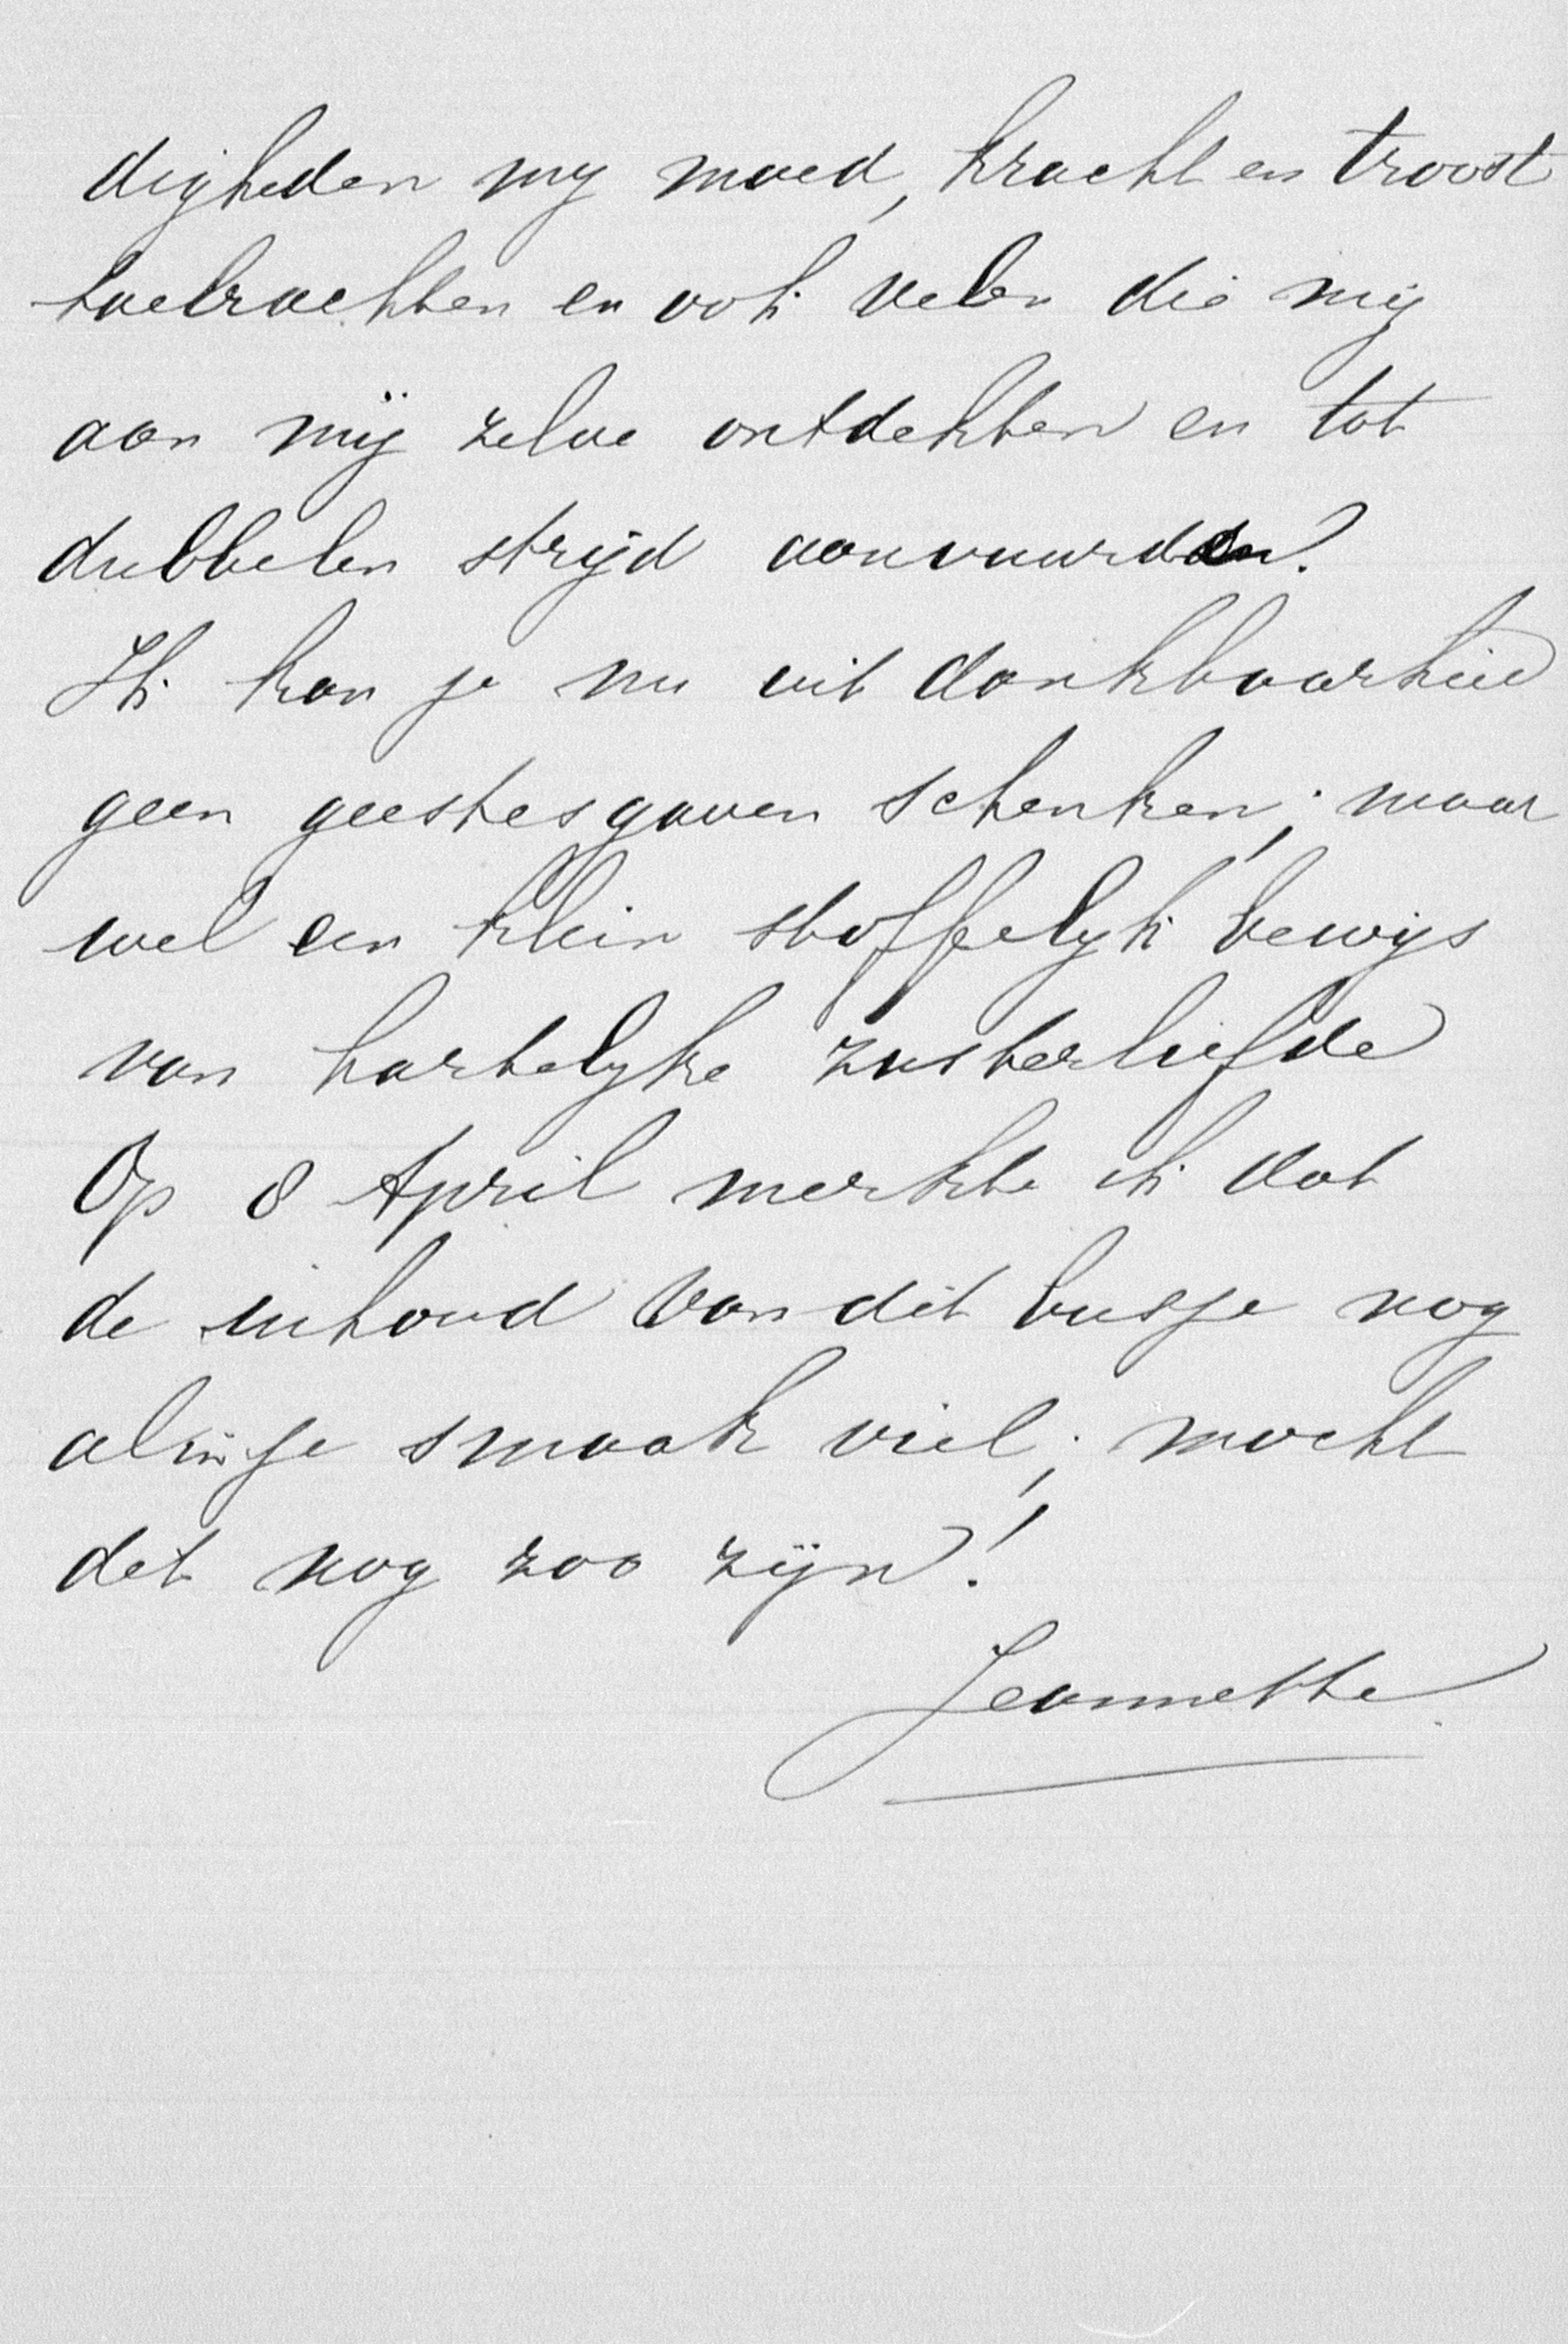 digheden my moed, kracht en troost
toebrachten en ook velen die mij
aan mij zelve ontdekten en tot
dubbelen strijd aanvuurden?
Ik kan je nu uit dankbaarheid
geen geestesgaven schenken; maar
wel een klein stoffelyk bewijs
van hartelyke zusterliefde
Op 8 April merkte ik dat
de inhoud van dit busje nog
al in je smaak viel; mocht
dit nog zoo zijn!
Jeannette